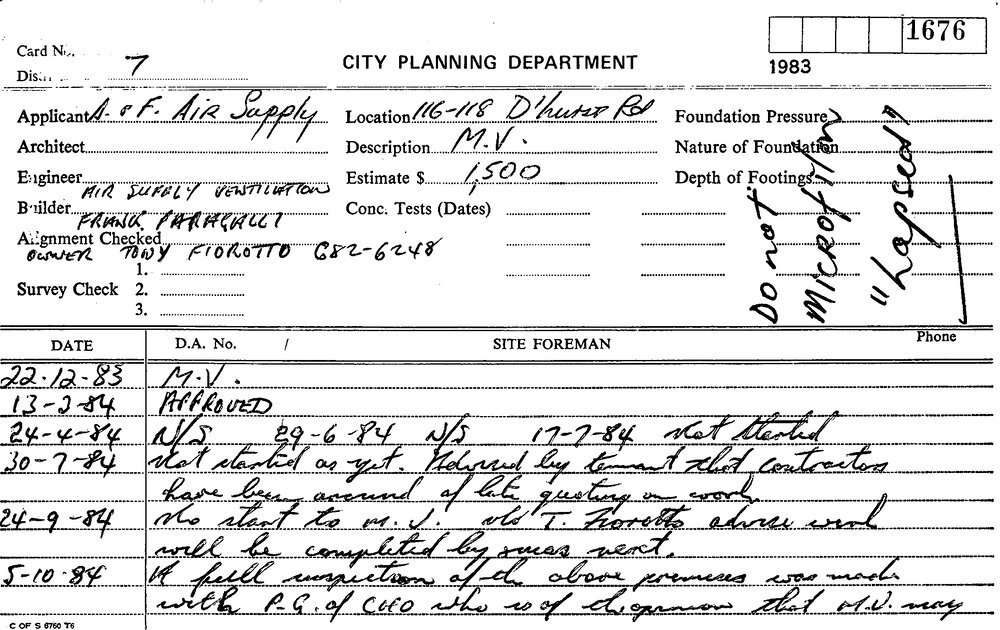 1676
Card No.
1983
Dis
7
CITY PLANNING DEPARTMENT
Applicant A. & F. AIR Supply
Location 116-118 D'hurst Rd
Foundation Pressure
Architect
Description M.V.
Nature of Foundation
Engineer AIR SUPPLY VENTILATION
Estimate $ 1,500
Depth of Footings
Builder FRANK PARAGALLI
Conc. Tests (Dates)
Alignment Checked
OWNER TONY FIOROTTO 682-6248
1.
Survey Check 2.
3.
Do not
MICROFILM
"Lapsed"
DATE D.A. No. / SITE FOREMAN Phone
22-12-83 M.V.
13-2-84 APPROVED
24-4-84 N/S 29-6-84 N/S 17-7-84 Not Started
30-7-84 Not started as yet. Advised by tennant that contractors
have been around of late quoting on work.
24-9-84 No start to M.V. T. Fiorotto advise work
will be completed by xmas next.
5-10-84 A full inspection of the above premises was made
with P.G. of CHO who is of the opinion that M.V. may
C OF S 6760 T6